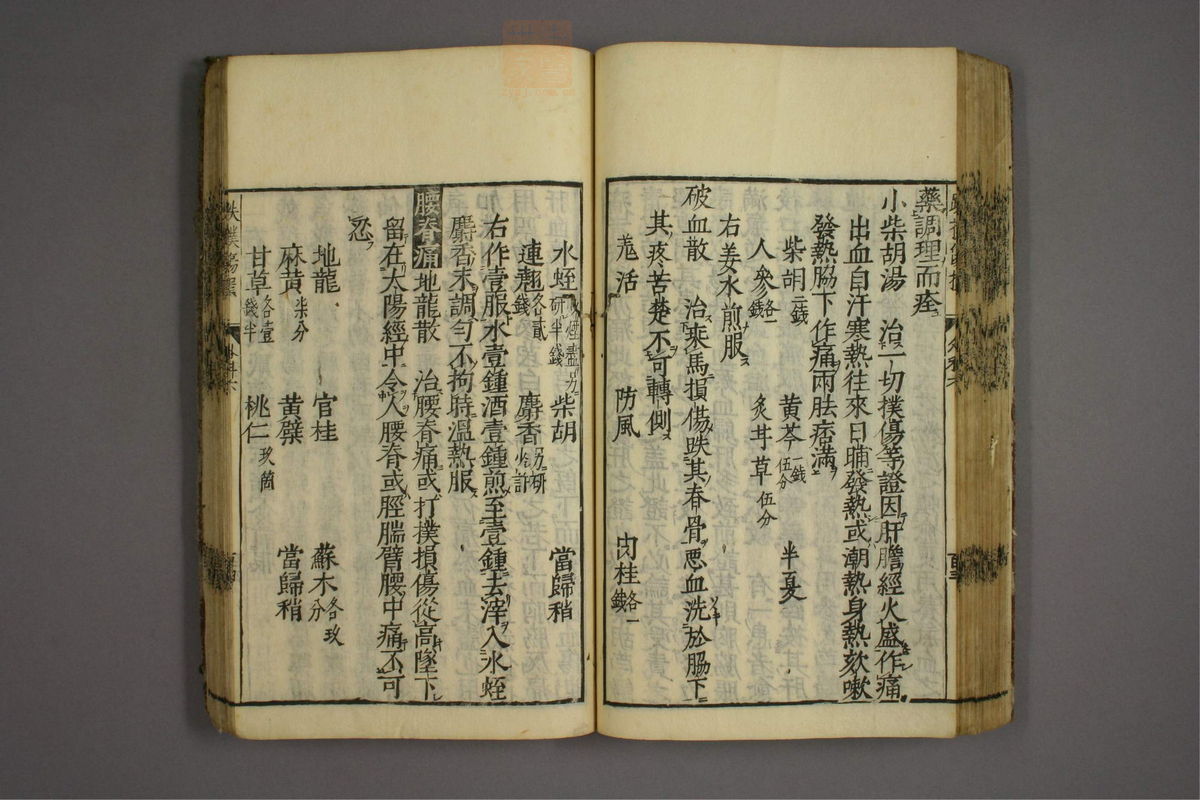 藥調理而痊
小柴胡湯　治一切撲傷等證因肝膽經火盛作痛
出血自汗寒熱往來日晡發熱或潮熱身熱欬嗽
發熱脇下作痛兩胠痞滿
柴胡二錢　黃芩一錢伍分　半夏
人參各一錢　炙甘草伍分
右姜水煎服
破血散　治乘馬損傷跌其脊骨惡血流於脇下
其疼苦楚不可轉側
羗活　防風　肉桂各一錢
水蛭研半錢炒煙盡另　柴胡　當歸稍
連翹各貳錢　麝香另研少許
右作壹服水壹鍾酒壹鍾煎至壹鍾去滓入水蛭
麝香末調勻不拘時溫熱服
腰脊痛　地龍散　治腰脊痛或打撲損傷從高墜下
留在太陽經中令人腰脊或脛腨臂腰中痛不可
忍
地龍　官桂　蘇木各玖分
麻黃柒分　黃蘗　當歸稍
甘草各壹錢半　桃仁玖箇
跌撲傷損　外科六